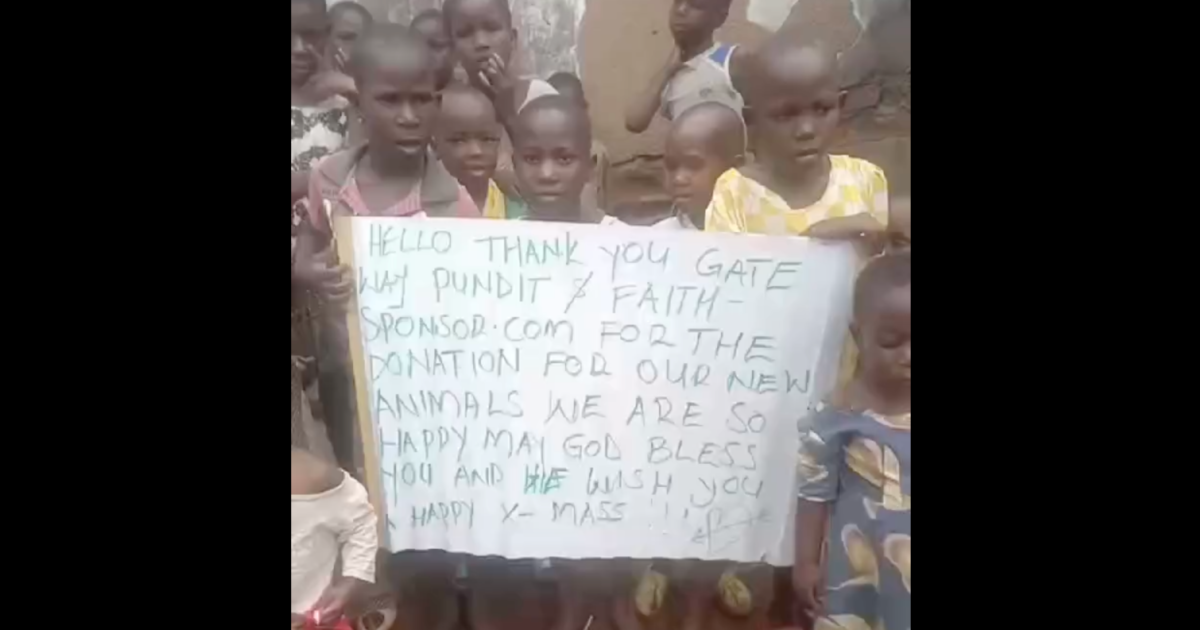 HELLO THANK YOU GATE
WAY PUNDIT & FAITH-
SPONSOR.COM FOR THE
DONATION FOR OUR NEW
ANIMALS WE ARE SO
HAPPY MAY GOD BLESS
YOU AND WE WISH YOU
A HAPPY X-MASS !!